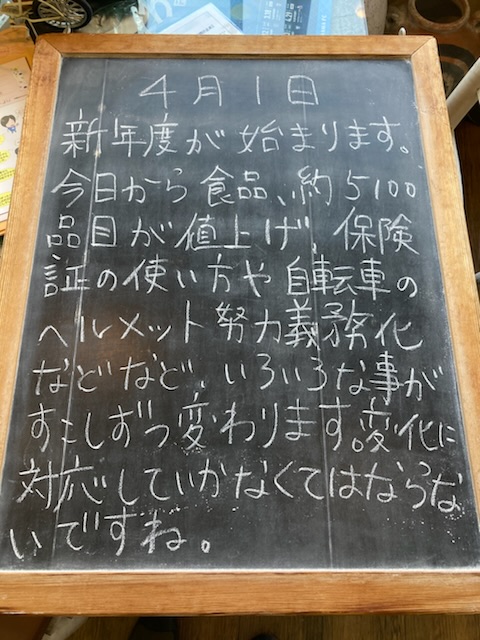 4月1日
新年度が始まります。
今日から食品、約5100
品目が値上げ、保険
証の使い方や自転車の
ヘルメット努力義務化
などなど、いろいろな事が
すこしずつ変わります。変化に
対応していかなくてはならな
いですね。